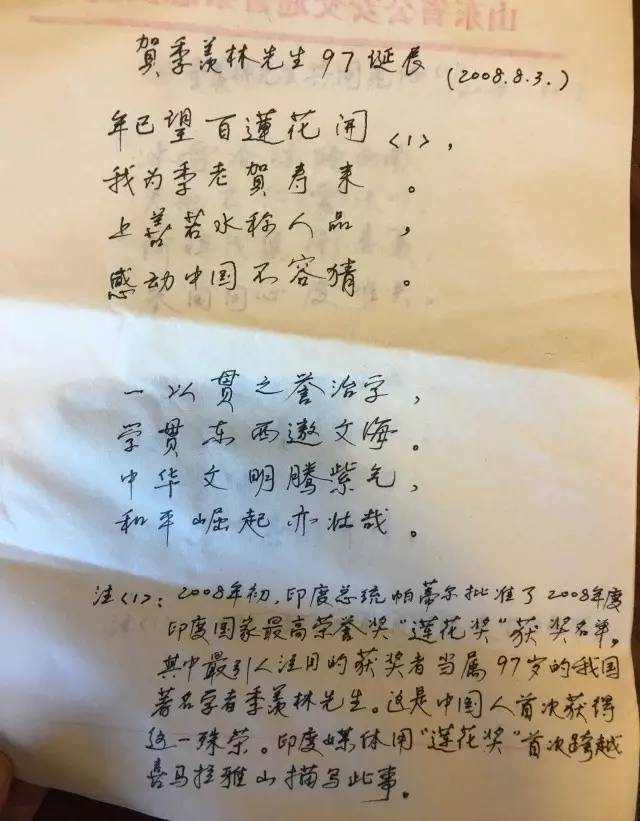 賀季羡林先生97诞辰 (2008.8.3.)
年已望百蓮花开<1>,
我为季老賀寿来。
上善若水称人品,
感动中国不容猜。
一以贯之誉治字,
学贯东西遨文海。
中华文明腾紫气,
和平崛起亦壮哉。
注<1>: 2008年初,印度总统帕蒂尔批准了2008年度
印度国家最高荣誉奖“莲花奖”获奖名单,
其中最引人注目的获奖者当属97岁的我国
著名学者季羡林先生。这是中国人首次获得
这一殊荣。印度媒体用“莲花奖”首次跨越
喜马拉雅山描写此事。